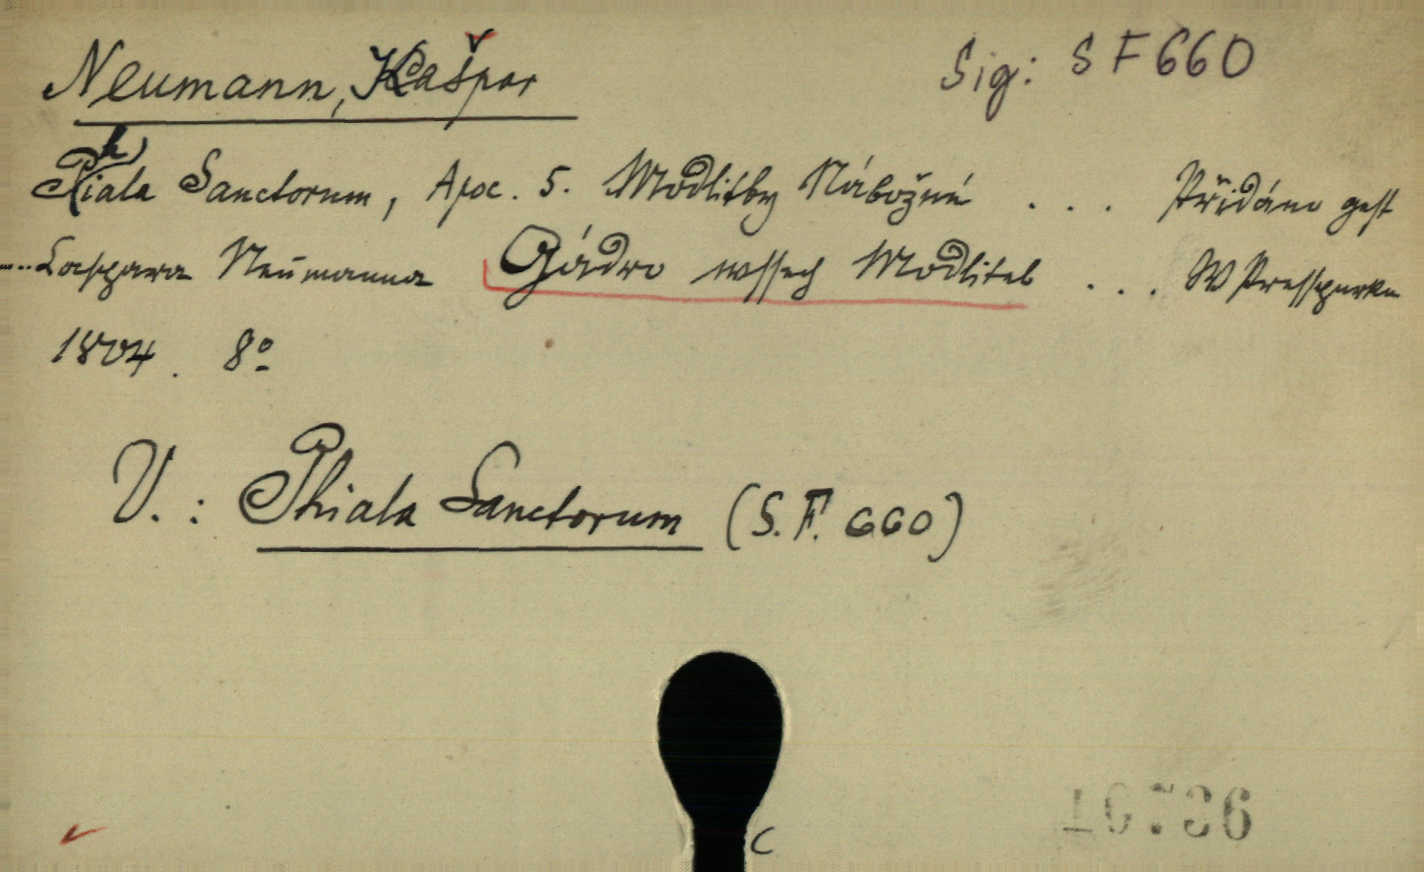 Neumann, Kašpar
Sig: SF660
Phiala Sanctorum, Apoc. 5. Modlitby Nábožné . . . Přidáno gest
... Caspara Neumanna Gádro wssech Modliteb . . . W Presspurku
1804. 8º
V.: Phiala Sanctorum (S.F. 660)
10736
C